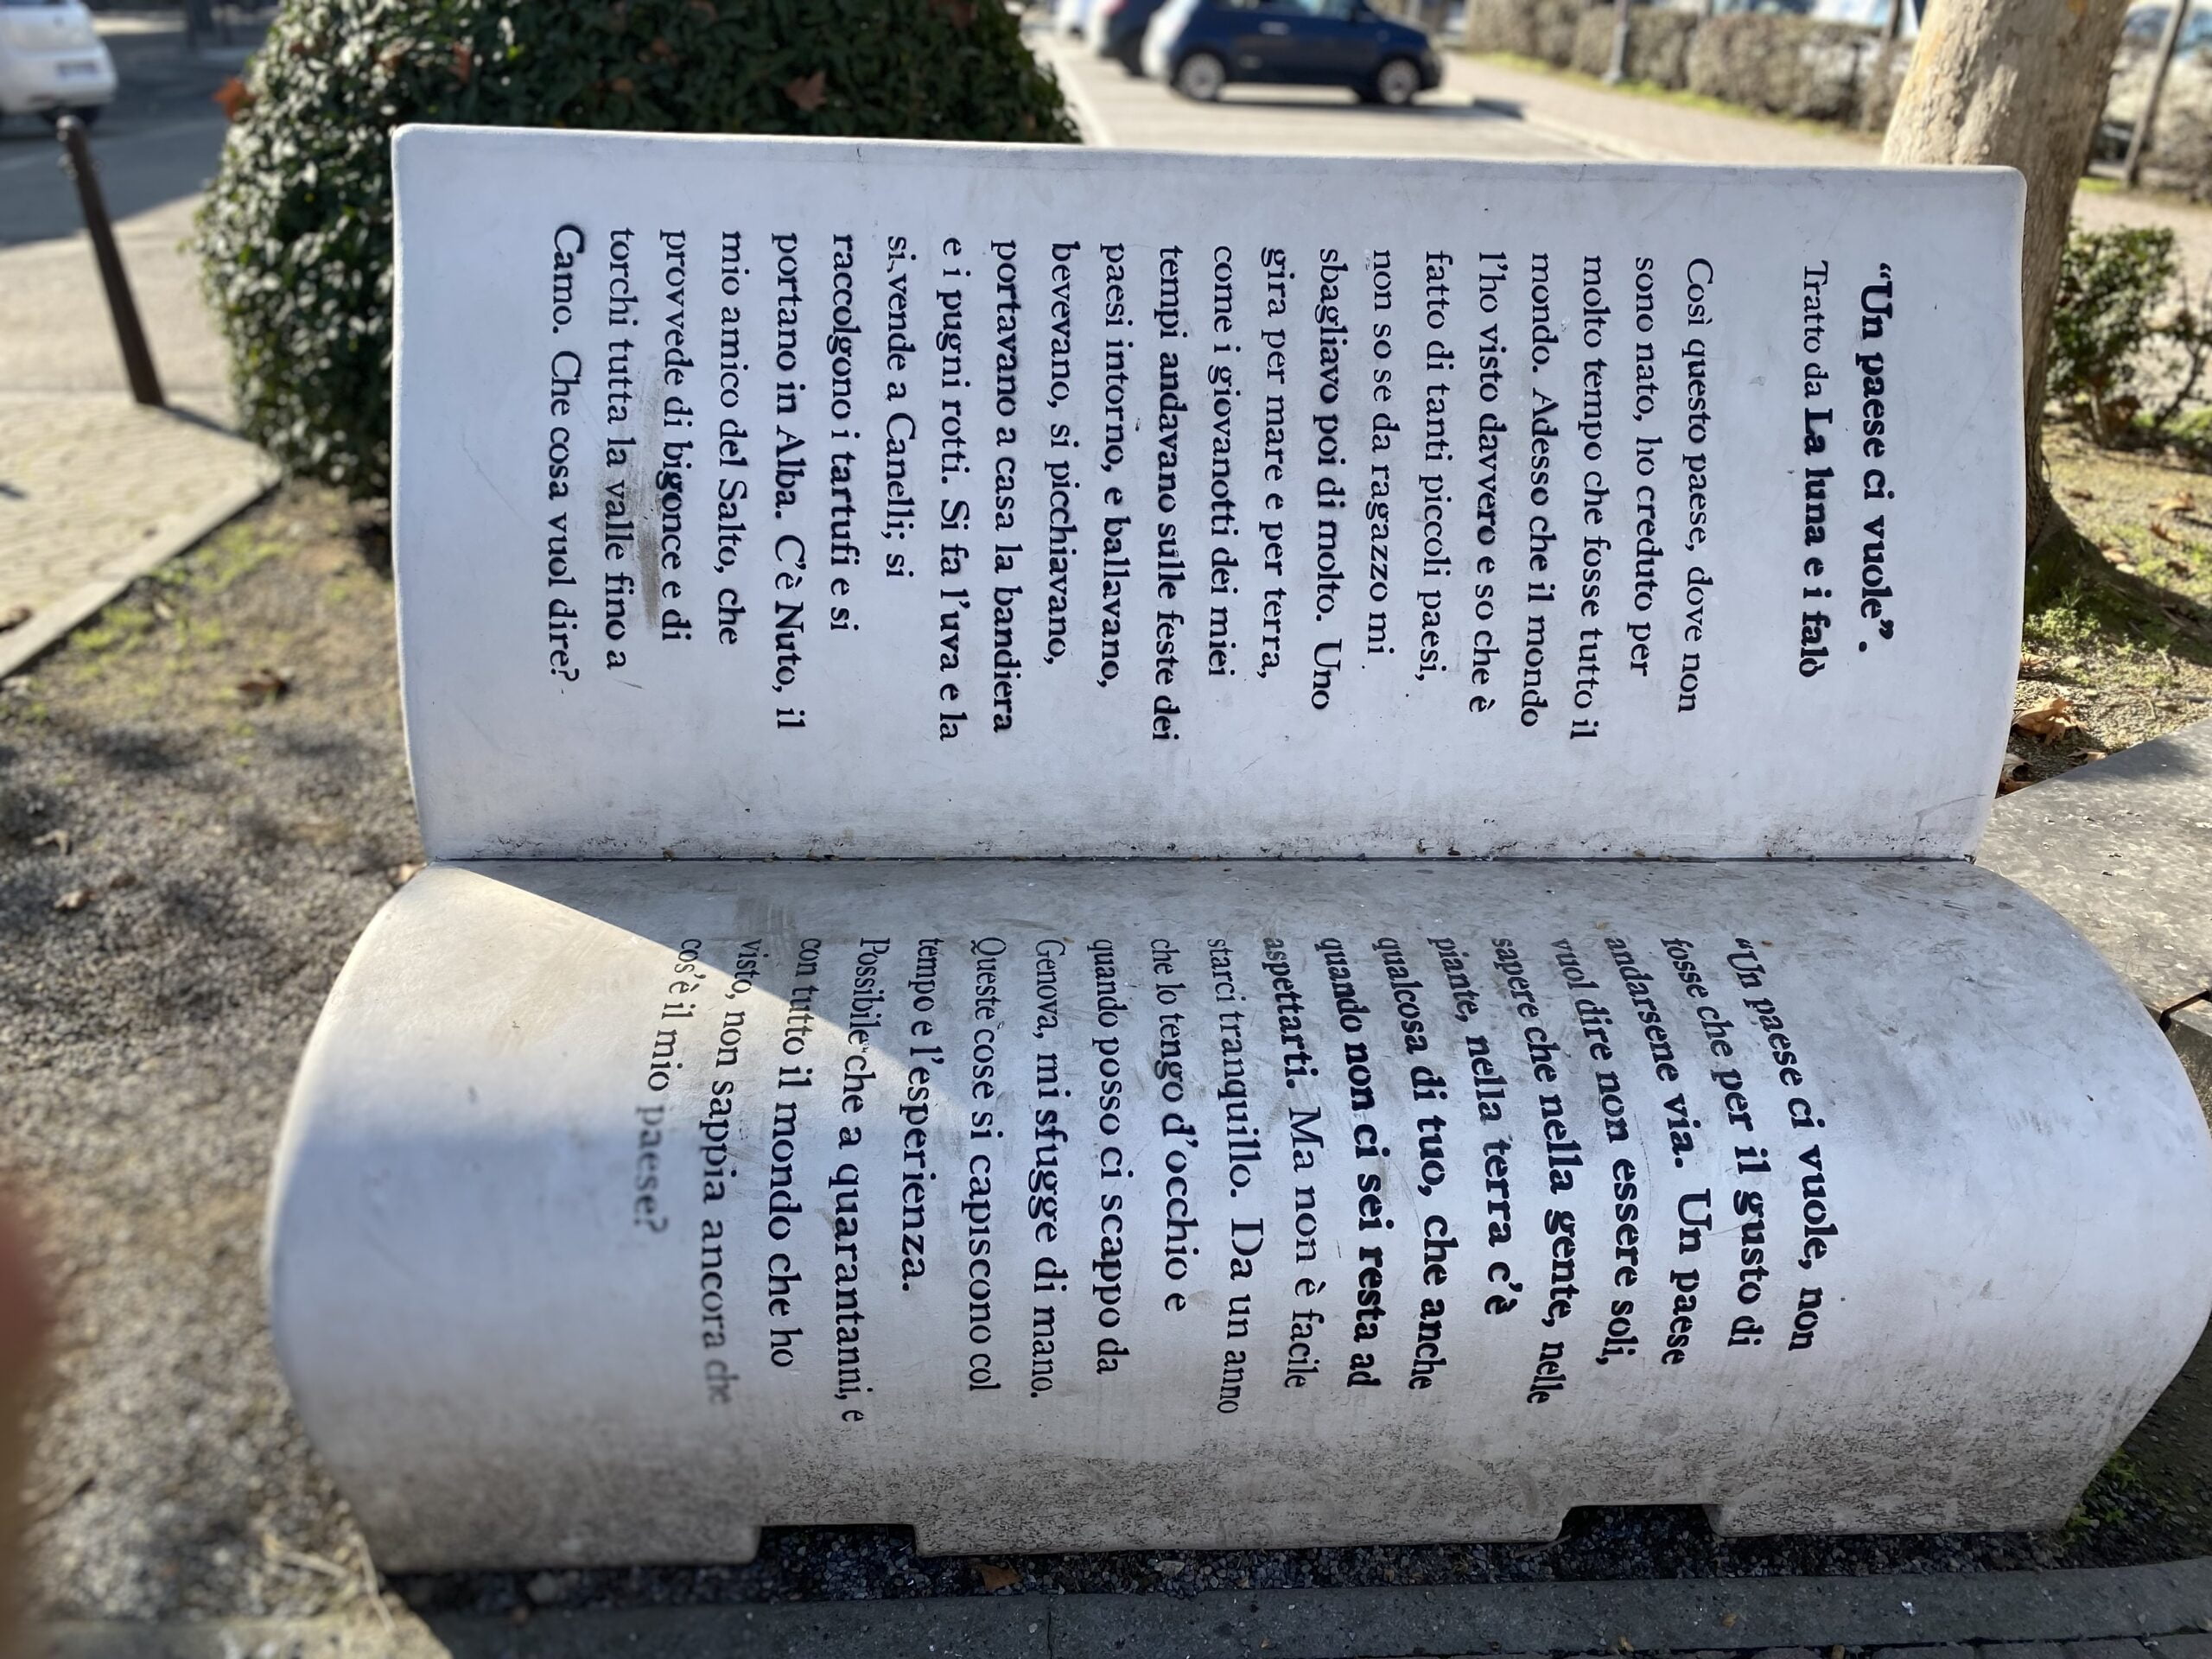 “Un paese ci vuole”.
Tratto da La luna e i falò
Così questo paese, dove non
sono nato, ho creduto per
molto tempo che fosse tutto il
mondo. Adesso che il mondo
l’ho visto davvero e so che è
fatto di tanti piccoli paesi,
non so se da ragazzo mi
sbagliavo poi di molto. Uno
gira per mare e per terra,
come i giovanotti dei miei
tempi andavano sulle feste dei
paesi intorno, e ballavano,
bevevano, si picchiavano,
portavano a casa la bandiera
e i pugni rotti. Si fa l’uva e la
si vende a Canelli; si
raccolgono i tartufi e si
portano in Alba. C’è Nuto, il
mio amico del Salto, che
provvede di bigonce e di
torchi tutta la valle fino a
Camo. Che cosa vuol dire?
“Un paese ci vuole, non
fosse che per il gusto di
andarsene via. Un paese
vuol dire non essere soli,
sapere che nella gente, nelle
piante, nella terra c’è
qualcosa di tuo, che anche
quando non ci sei resta ad
aspettarti. Ma non è facile
starci tranquillo. Da un anno
che lo tengo d’occhio e
quando posso ci scappo da
Genova, mi sfugge di mano.
Queste cose si capiscono col
tempo e l’esperienza.
Possibile che a quarantanni, e
con tutto il mondo che ho
visto, non sappia ancora che
cos’è il mio paese?